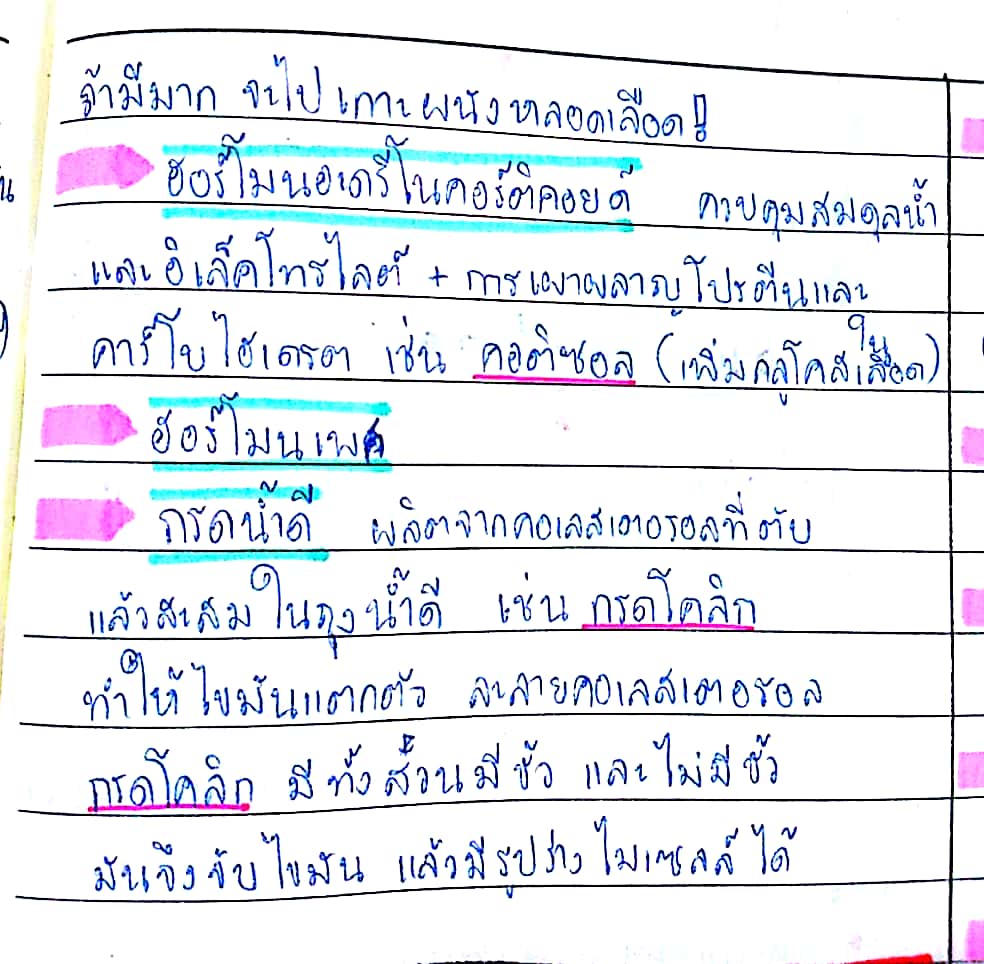 ถ้ามีมาก จะไปเกาะผนังหลอดเลือด!
ฮอร์โมนอะดรีโนคอร์ติคอยด์ ควบคุมสมดุลน้ำ
และอิเล็คโทรไลต์ + การเผาผลาญโปรตีนและ
คาร์โบไฮเดรต เช่น คอติซอล (เพิ่มกลูโคสในเลือด)
ฮอร์โมนเพศ
กรดน้ำดี ผลิตจากคอเลสเตอรอลที่ตับ
แล้วสะสมในถุงน้ำดี เช่น กรดโคลิก
ทำให้ไขมันแตกตัว ละลายคอเลสเตอรอล
กรดโคลิก มีทั้งส่วนมีขั้ว และไม่มีขั้ว
มันจึงจับไขมัน แล้วมีรูปร่างไมเซลล์ได้